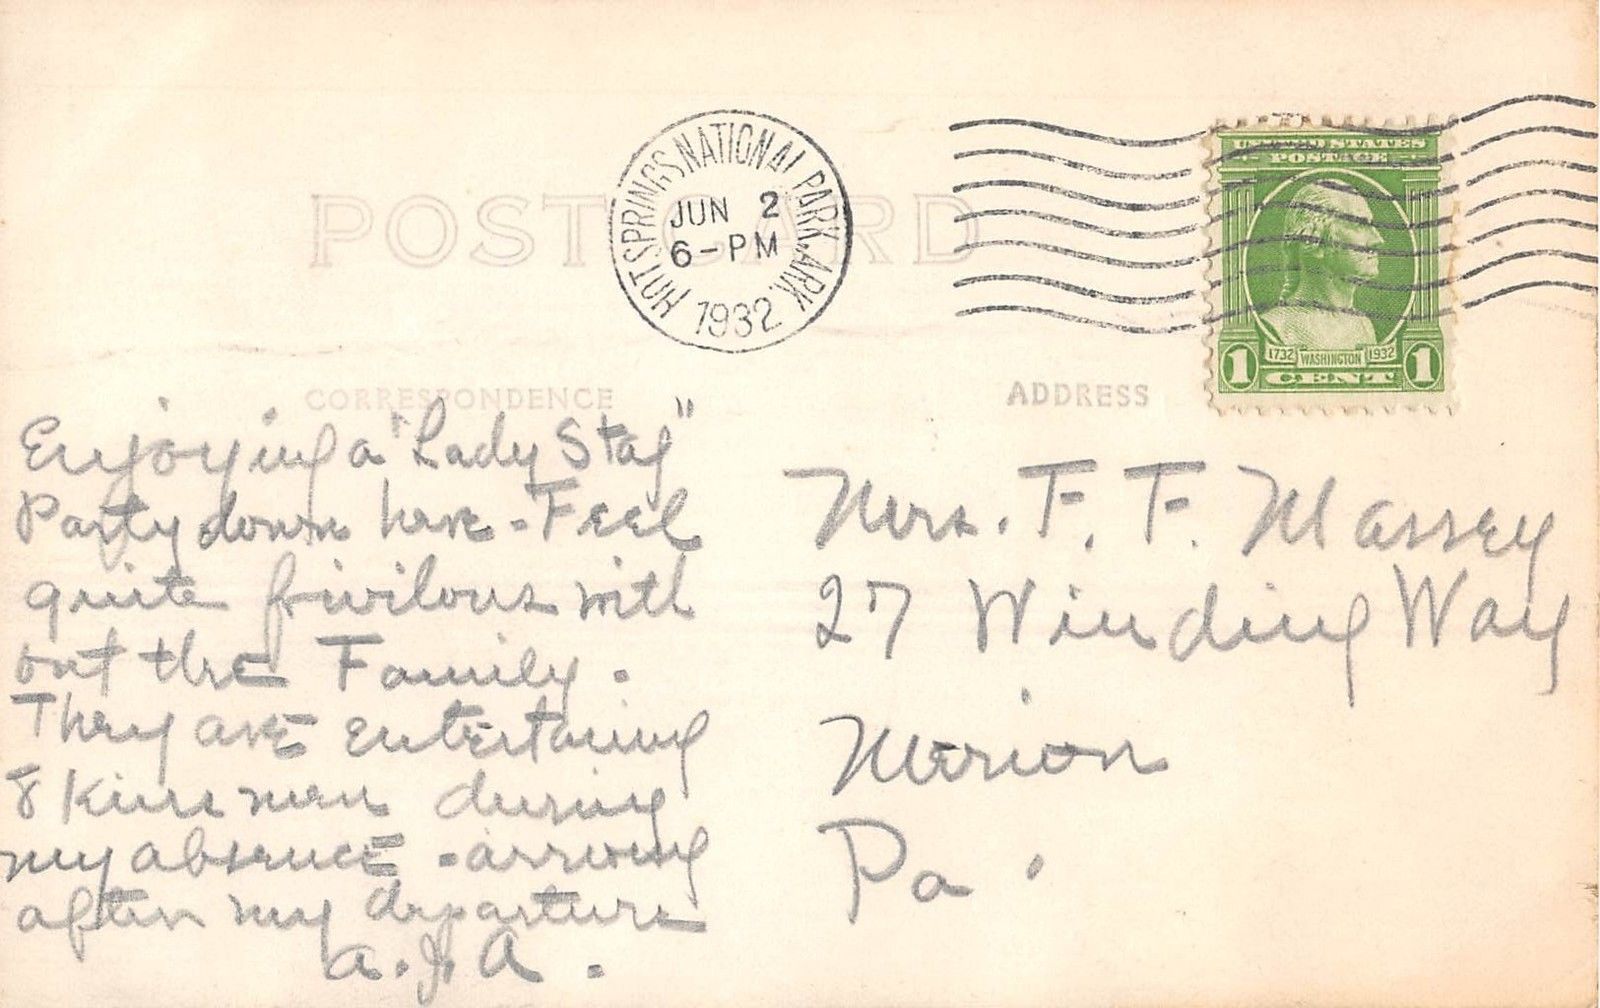 POST CARD
HOT SPRINGS NATIONAL PARK. ARK.
JUN 2
6-PM
1932
UNITED STATES
POSTAGE
1732 WASHINGTON 1932
1 CENT 1
CORRESPONDENCE
ADDRESS
Enjoying a "Lady Stag"
Party down here - Feel
quite frivilous with
out the Family.
They are entertaining
8 Kins men during
my absence - arriving
after my departure
A.J.A.
Mrs. F. F. Massey
27 Winding Way
Merion
Pa.